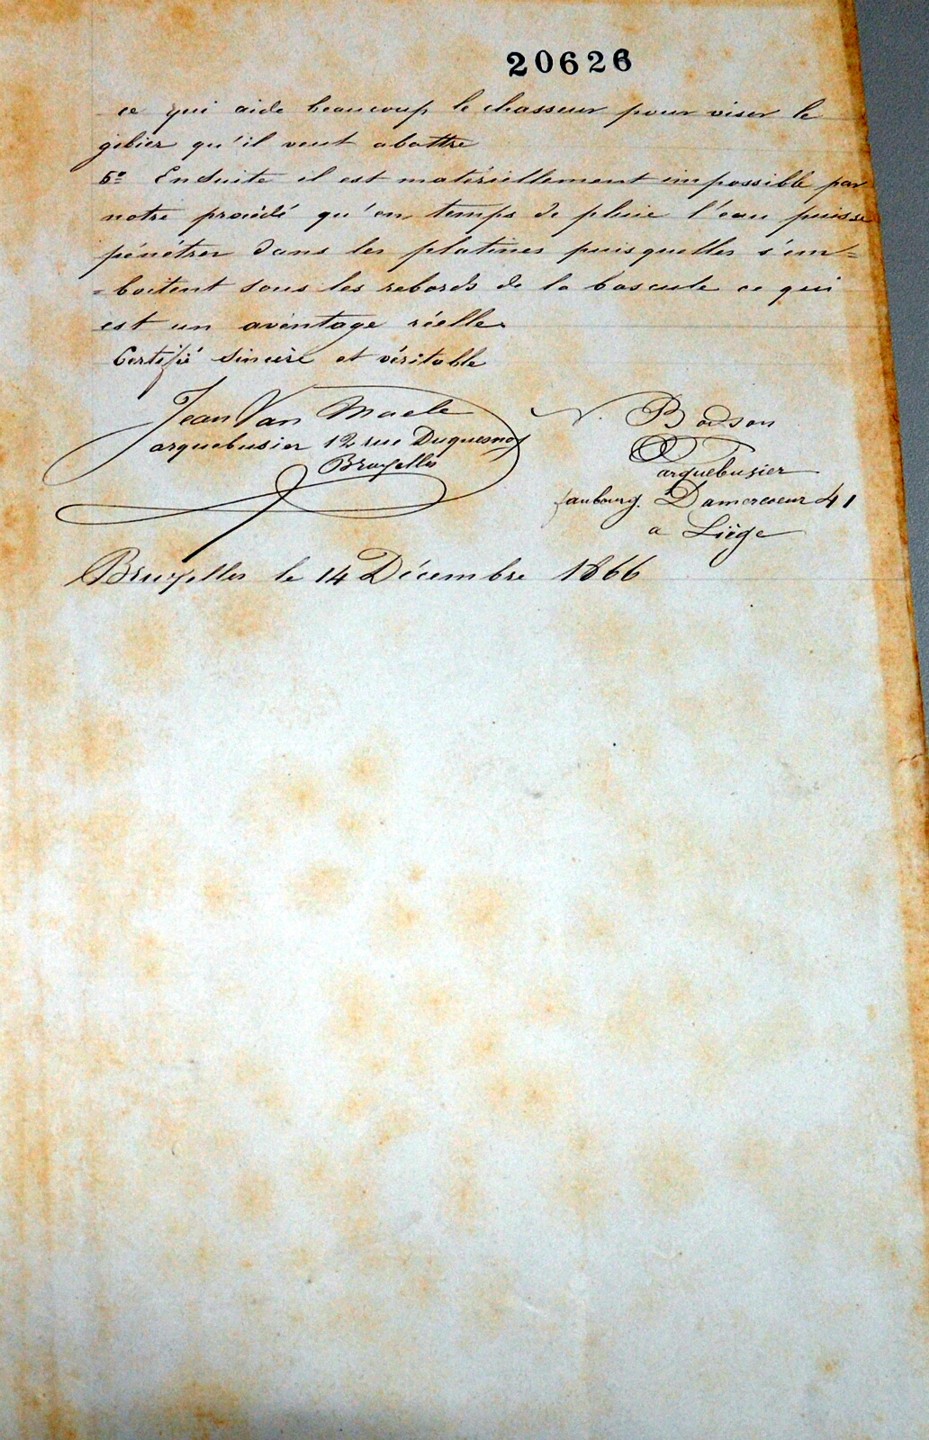 20626
ce qui aide beaucoup le chasseur pour viser le
gibier qu'il veut abattre
5º Ensuite il est matériellement impossible par
notre procédé qu'en temps de pluie l'eau puisse
pénétrer dans les platines puisquelles s'em=
=boitent sous les rebords de la bascule ce qui
est un avantage réelle.
Certifié sincère et véritable
Jean Van Maele
arquebusier 12 rue Duquesnoy
Bruxelles
N. Bodson
arquebusier
faubourg. Damercoeur 41
a Liège
Bruxelles le 14 Décembre 1866